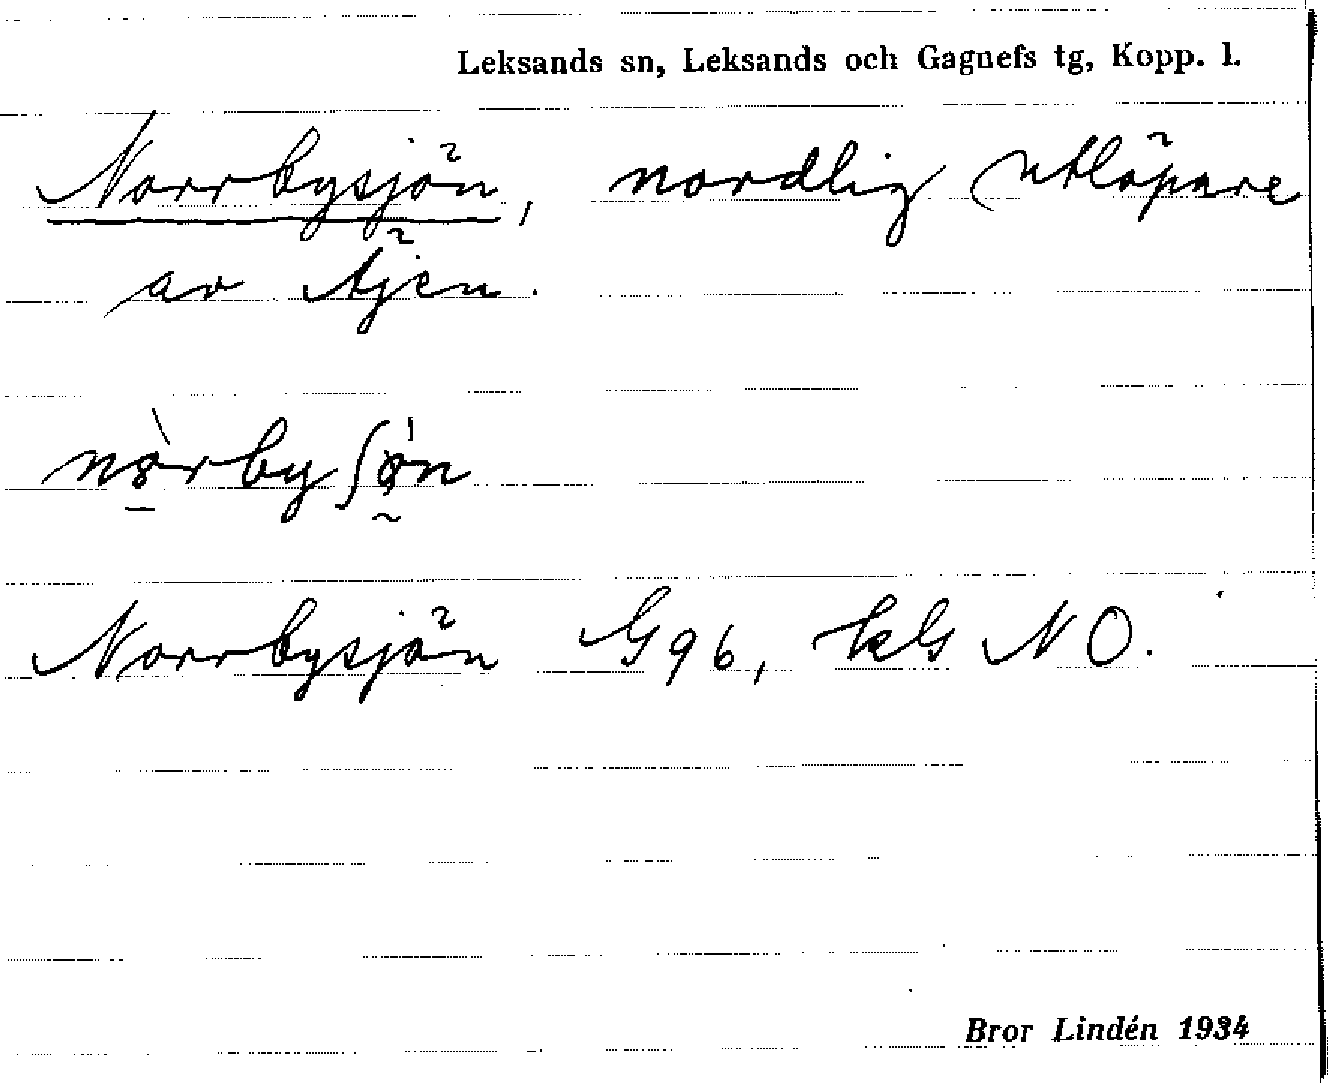 Leksands sn, Leksands och Gagnefs tg, Kopp. l.
Norrbysjön, nordlig utlöpare
av Äjen.
Norrbysjön G96, kbl NO.
Bror Lindén 1934